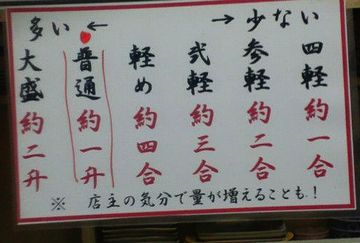 多い ← → 少ない
四軽 約一合
参軽 約二合
弐軽 約三合
軽め 約四合
普通 約一升
大盛 約二升
※ 店主の気分で量が増えることも!